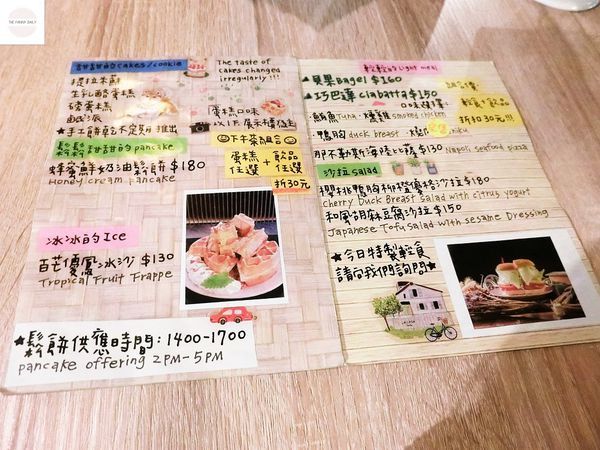 THE FUNNY DAILY
甜甜的cakes/cookie
提拉米蘇
生乳酪蛋糕
磅蛋糕
鹹派
★手工餅乾不定期推出
The taste of
cakes changed
irregularly!!!
蛋糕口味
以1F展示櫃為主
鬆鬆甜甜的pancake
蜂蜜鮮奶油鬆餅$180
Honey cream pancake
下午茶組合
蛋糕任選 + 飲品任選
折30元
冰冰的Ice
百芒優鳳冰沙 $130
Tropical Fruit Frappe
★鬆餅供應時間:1400-1700
pancake offering 2PM-5PM
輕輕的Light meal
▲貝果Bagel $160
▲巧巴達ciabatta $150
口味選擇:
鮪魚Tuna、燻雞smoked chicken
鴨胸duck breast
輕食+飲品
折30元!!!
那不勒斯海陸比薩 $130 Napoli seafood pizza
沙拉Salad
櫻桃鴨胸柳橙優格沙拉$180
Cherry Duck Breast salad with citrus yogurt
和風胡麻豆腐沙拉$150
Japanese Tofu Salad with sesame Dressing
★今日特製輕食
請向我們詢問★